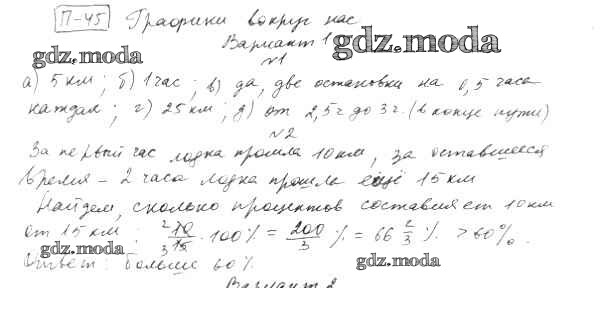 П-45 Графики вокруг нас
Вариант 1
gdz.moda gdz.moda
№1
а) 5 км; б) 1 час; в) да, две остановки на 0,5 часа
каждая; г) 25 км; д) от 2,5 ч до 3 ч. (в конце пути)
№2
За первый час лодка прошла 10 км, за оставшееся
время – 2 часа лодка прошла ещё 15 км
Найдем, сколько процентов составляет 10 км
от 15 км; 2 10/15 3 · 100% = 200/3 % = 66 2/3 % > 60%.
gdz.moda
Ответ: больше 60%.
gdz.moda
Вариант 2